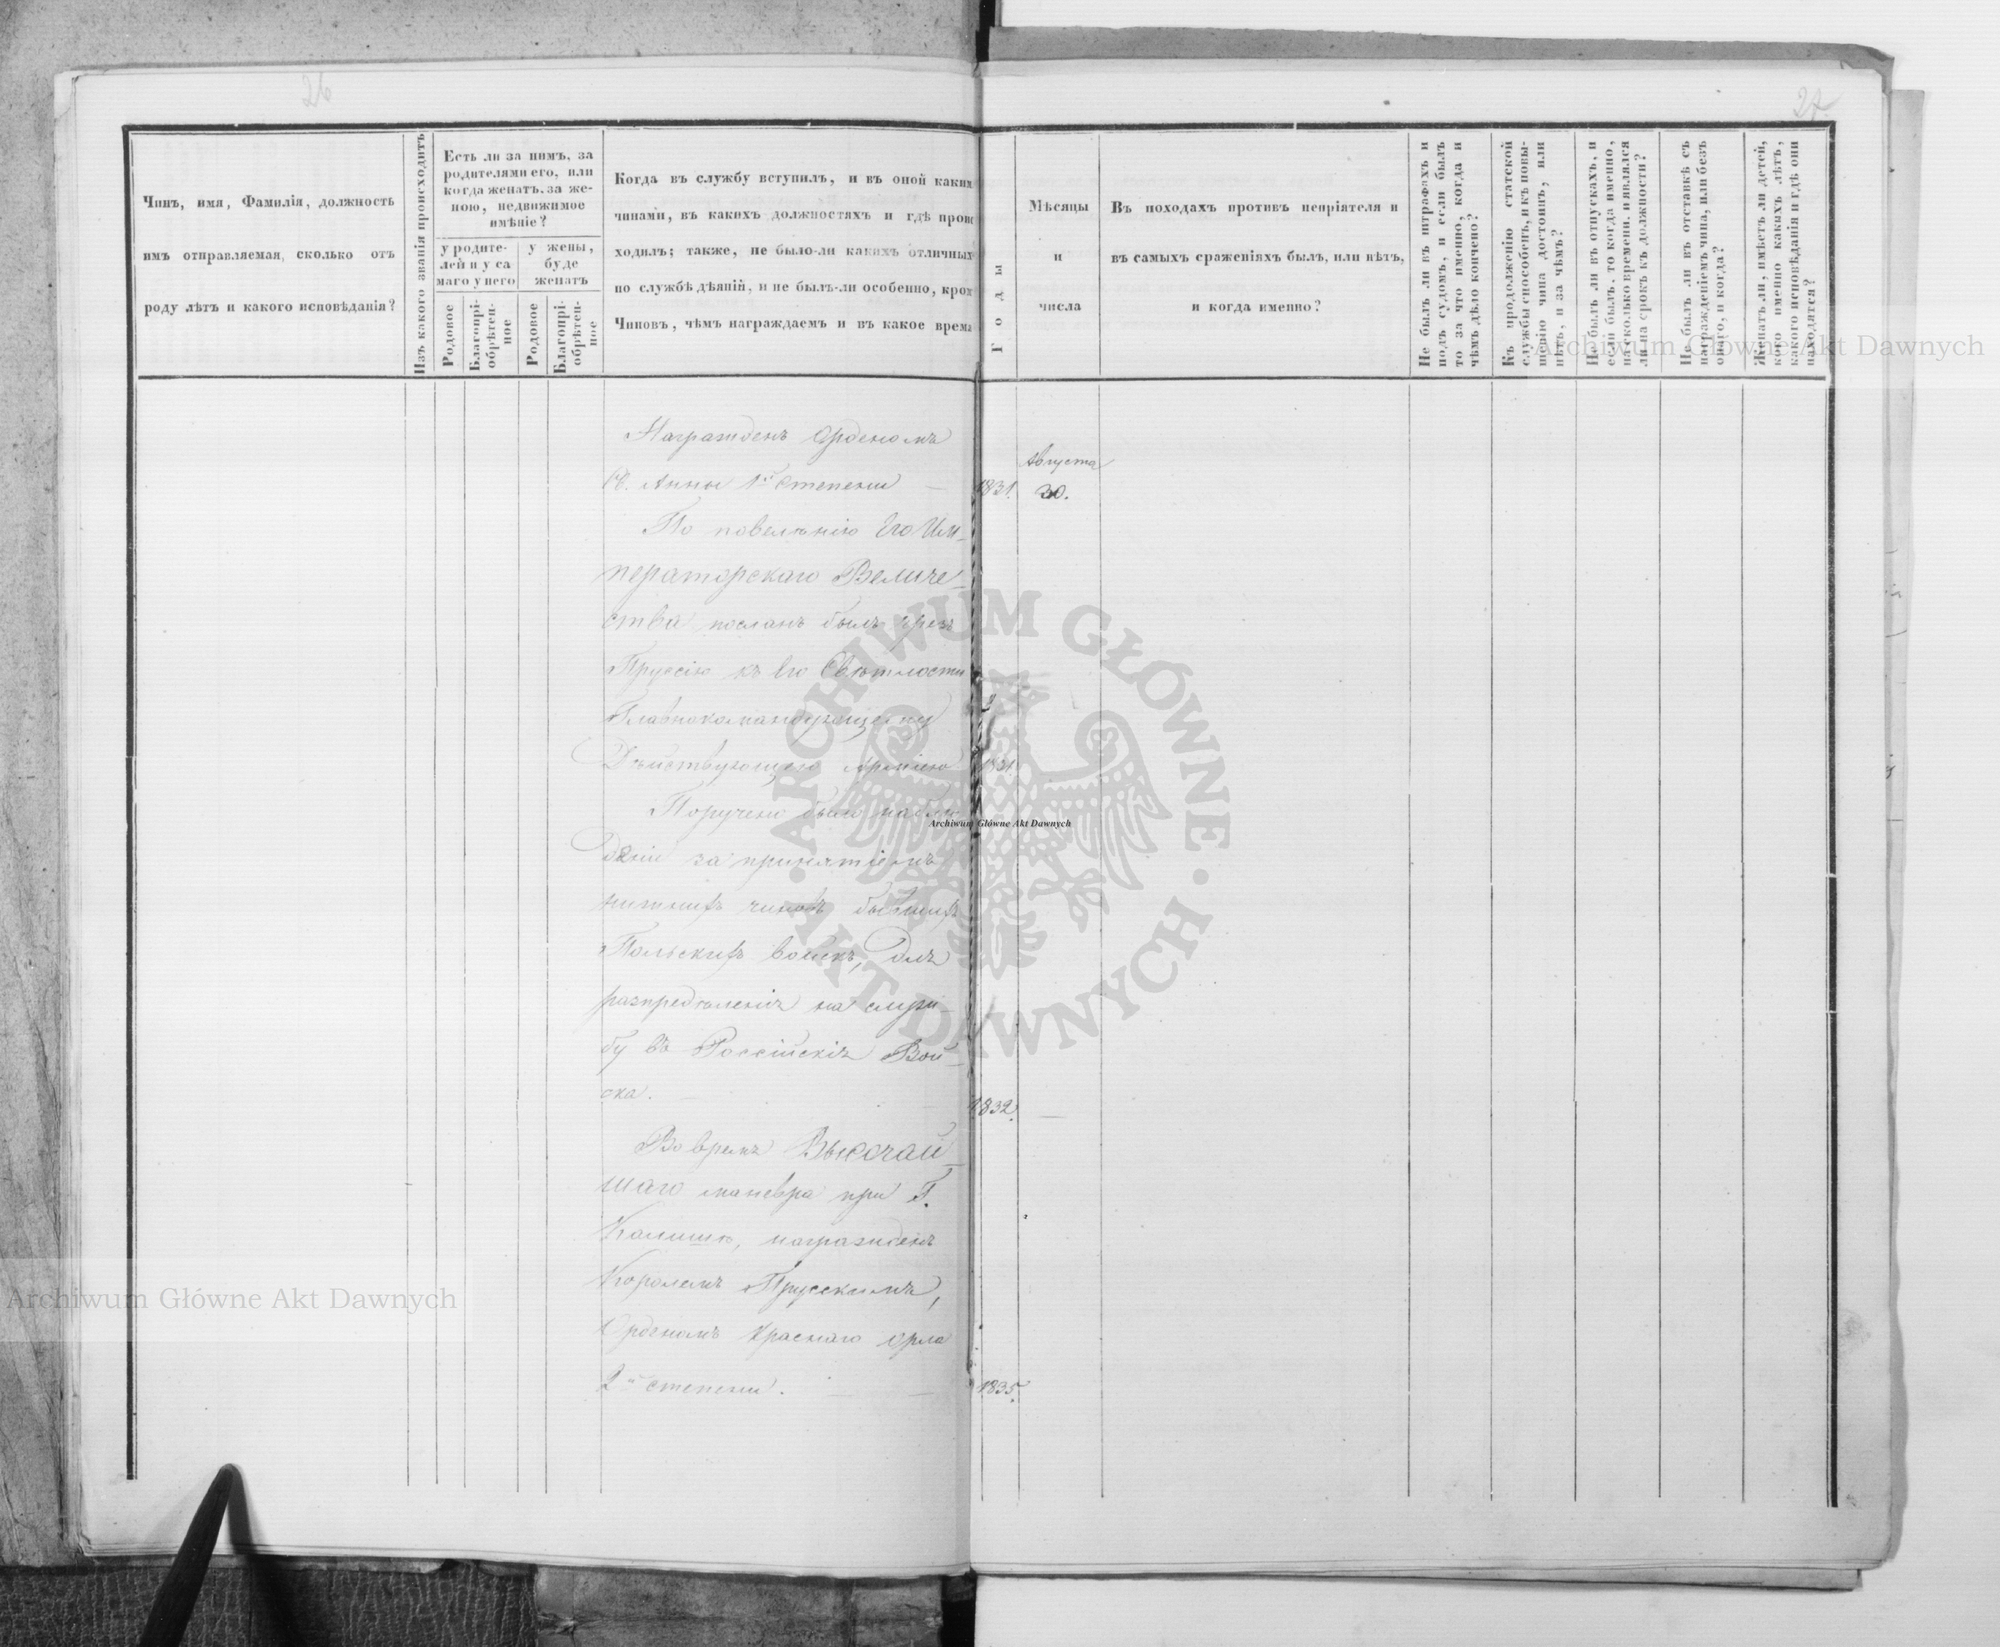 26
27
Чинъ, имя, Фамилія, должность
имъ отправляемая, сколько отъ
роду лѣтъ и какого исповѣданія?
Изъ какого званія происходитъ
Есть ли за нимъ, за
родителями его, или
когда женатъ, за же-
ною, недвижимое
имѣніе?
у родите-
лей и у са
маго у него
у жены,
буде
женатъ
Родовое
Благопрі-
обрѣтен-
ное
Родовое
Благопрі-
обрѣтен-
ное
Когда въ службу вступилъ, и въ оной каким
чинами, въ какихъ должностяхъ и гдѣ проис
ходилъ; также, не было-ли какихъ отличных
по службѣ дѣяній, и не былъ-ли особенно, кром
Чиновъ, чѣмъ награждаемъ и въ какое время
Годы
Мѣсяцы
и
числа
Въ походахъ противъ непріятеля и
въ самыхъ сраженіяхъ былъ, или нѣтъ,
и когда именно?
Не былъ ли въ штрафахъ и
подъ судомъ, и если былъ
то за что именно, когда и
чѣмъ дѣло кончено?
Къ продолженію статской
службы способенъ, и къ повы-
шенію чина достоинъ, или
нѣтъ, и за чѣмъ?
Не былъ ли въ отпускахъ, и
если былъ, то когда именно,
на сколько времени, и явился
ли на срокъ къ должности?
Не былъ ли въ отставкѣ съ
награжденіемъ чина, или безъ
онаго, и когда?
Женатъ ли, имѣетъ ли детей,
кого именно какихъ лѣтъ,
какого исповѣданія и гдѣ они
находятся?
Награжденъ Орденомъ
Св. Анны 1й Степени — 1831. Августа 30.
По повелѣнію Его Им-
ператорскаго Величе-
ства посланъ былъ чрезъ
Пруссію къ Его Свѣтлости
Главнокомандующему
Дѣйствующею Арміею 1831
Поручено было наблю
деніе за принятіемъ
нижнихъ чиновъ бывшихъ
Польскихъ войскъ, для
распредѣленія на служ-
бу въ Россійскія Вой-
ска. — 1832. —
Во время Высочай-
шаго маневра при Г.
Калишѣ, награжденъ
Королемъ Прусскимъ,
Орденомъ Краснаго Орла
2й степени. — 1835.
Archiwum Główne Akt Dawnych
Archiwum Główne Akt Dawnych
Archiwum Główne Akt Dawnych
ARCHIWUM GŁÓWNE · AKT DAWNYCH ·